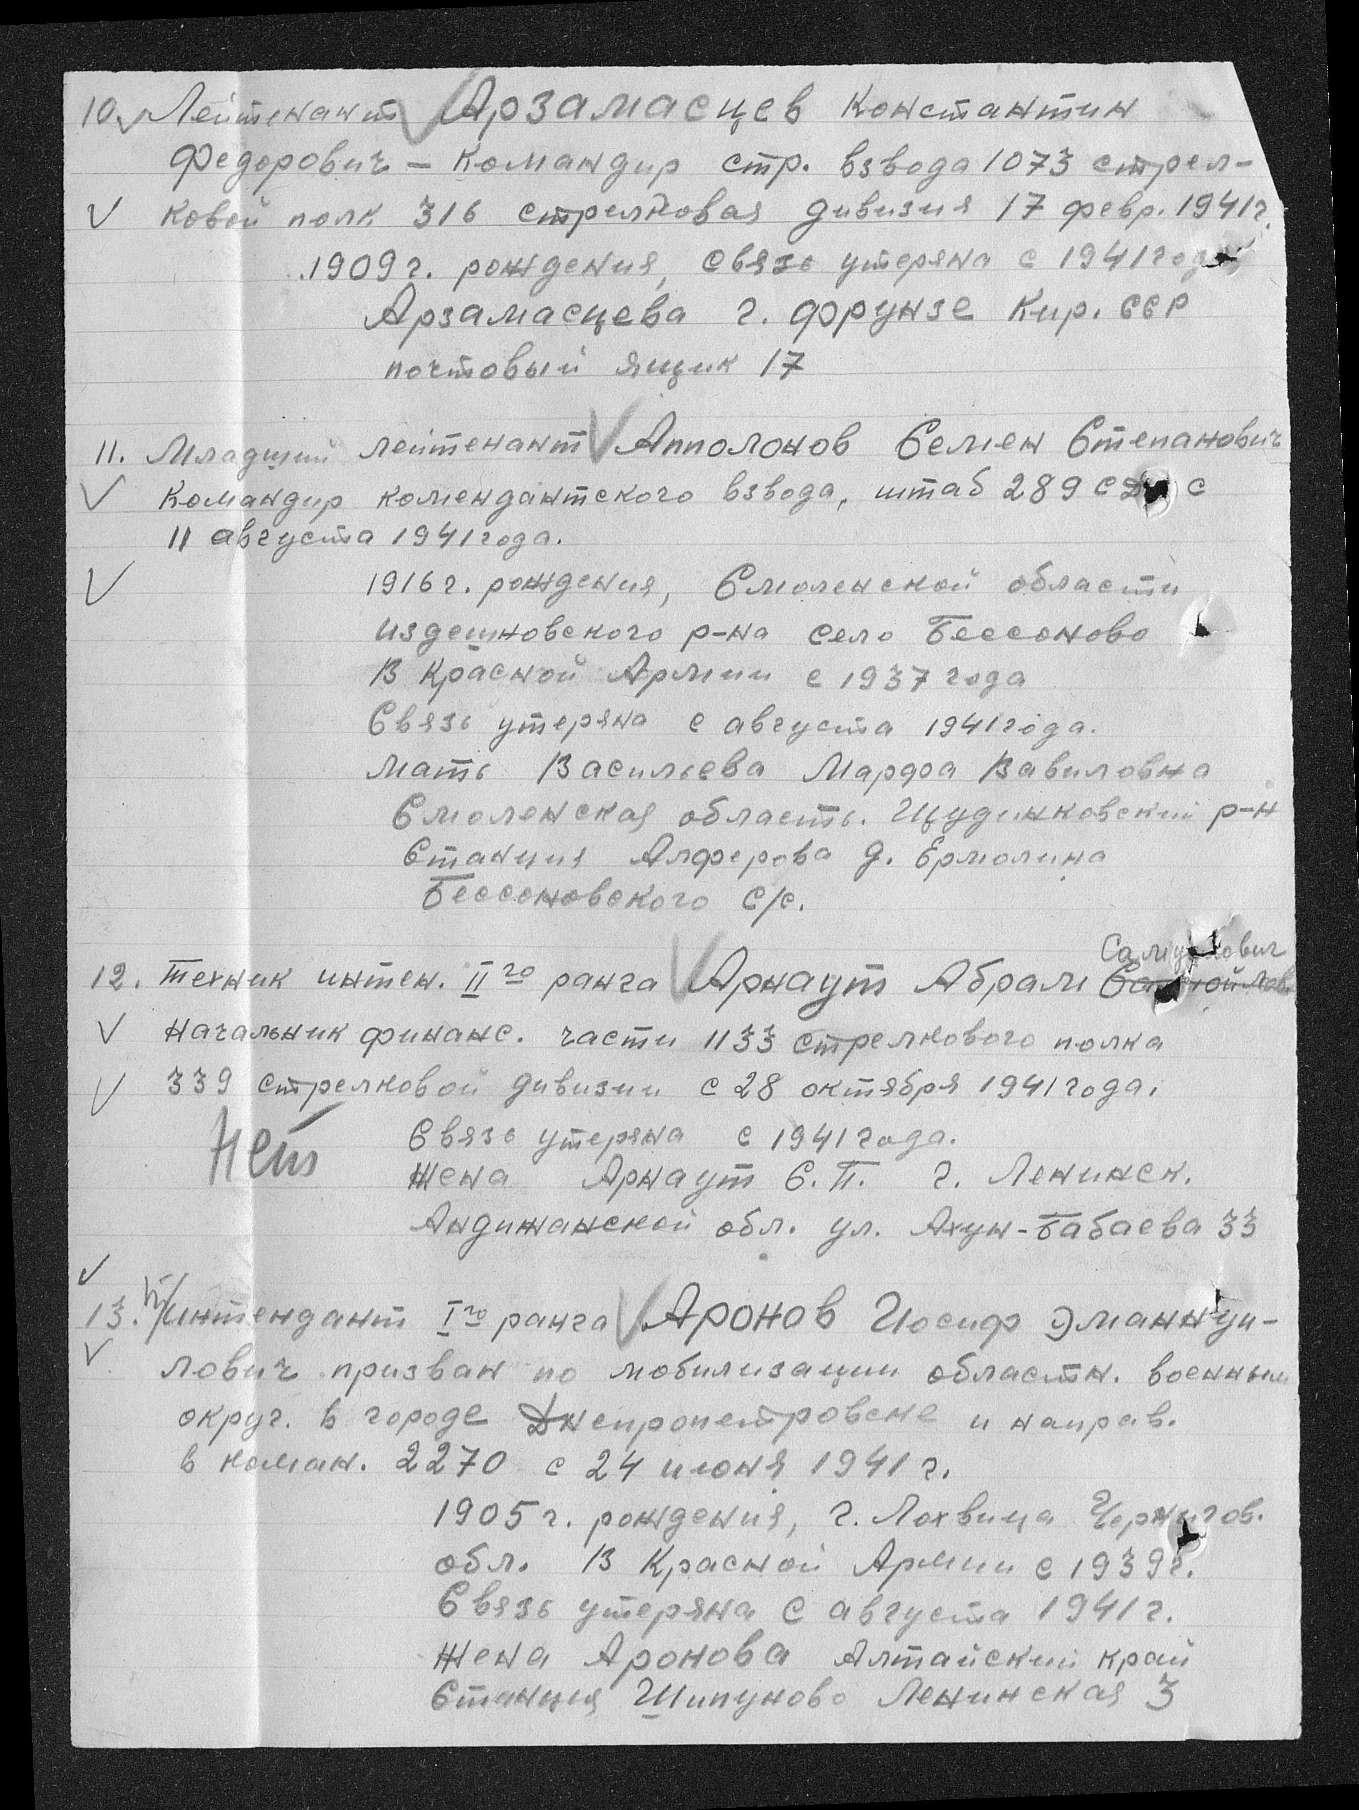 10. Лейтенант Арзамасцев Константин
Федорович – командир стр. взвода 1073 стрел-
ковой полк 316 стрелковая дивизия 17 февр. 1941г.
1909г. рождения, связь утеряна с 1941 года
Арзамасцева г. Фрунзе Кир. ССР
почтовый ящик 17
11. Младший лейтенант Апполонов Семен Степанович
Командир комендантского взвода, штаб 289 СД с
11 августа 1941 года.
1916г. рождения, Смоленской области
Издешковского р-на село Бессоново
В Красной Армии с 1937 года
Связь утеряна с августа 1941 года.
мать Васильева Марфа Вавиловна
Смоленская область. р-н
Станция Алферова д. Ермолина
Бессоновского с/с.
Самуилович
12. Техник интен. II го ранга Арнаут Абрам
начальник финанс. части 1133 стрелкового полка
339 стрелковой дивизии с 28 октября 1941 года.
Нет
Связь утеряна с 1941 года.
Жена Арнаут С.П. г. Ленинск.
Андижанской обл. ул. Ахун-Бабаева 33
13. т/интендант I го ранга Аронов Иосиф Эмануи-
лович призван по мобилизации областн. военным
округ. в городе Днепропетровске и направ.
в коман. 2270 с 24 июня 1941 г.
1905 г. рождения, г. Лохвица Чернигов.
обл. В Красной Армии с 1939г.
Связь утеряна с августа 1941 г.
Жена Аронова Алтайский край
Станция Шипуново Ленинская 3